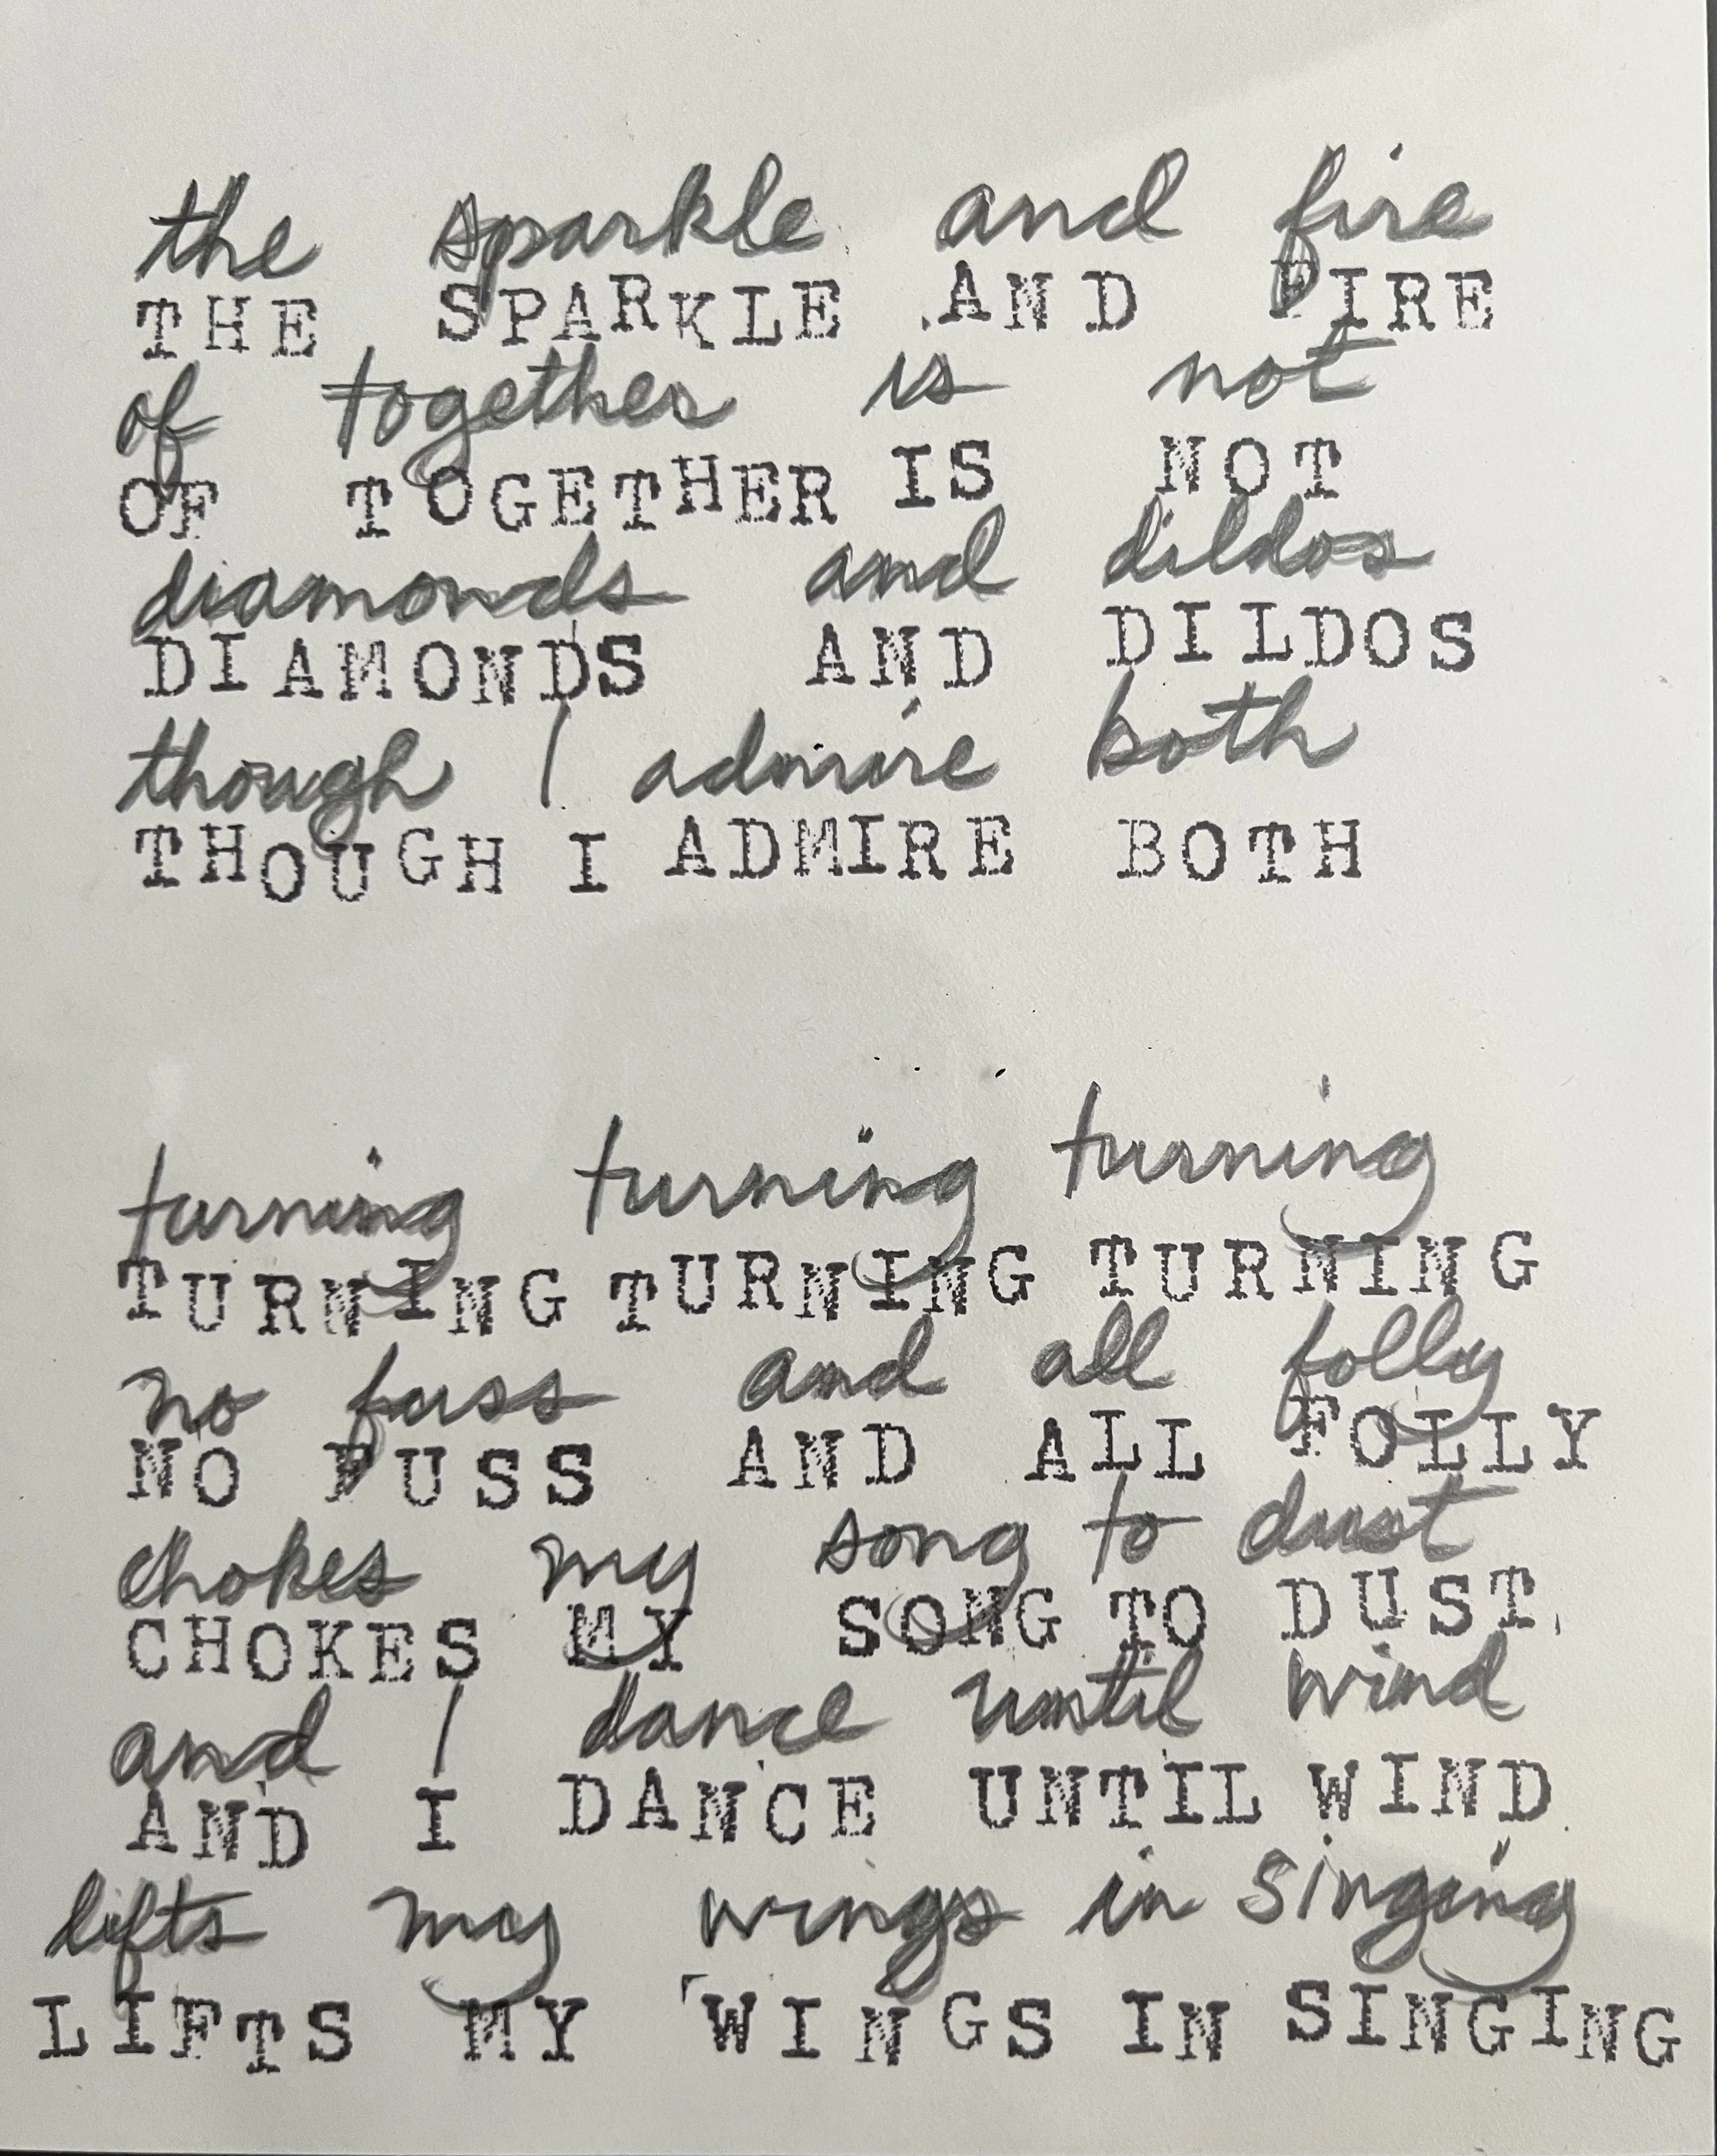 the sparkle and fire
THE SPARKLE AND FIRE
of together is not
OF TOGETHER IS NOT
diamonds and dildos
DIAMONDS AND DILDOS
though I admire both
THOUGH I ADMIRE BOTH
turning turning turning
TURNING TURNING TURNING
no fuss and all folly
NO FUSS AND ALL FOLLY
chokes my song to dust
CHOKES MY SONG TO DUST
and I dance until wind
AND I DANCE UNTIL WIND
lifts my wings in singing
LIFTS MY WINGS IN SINGING